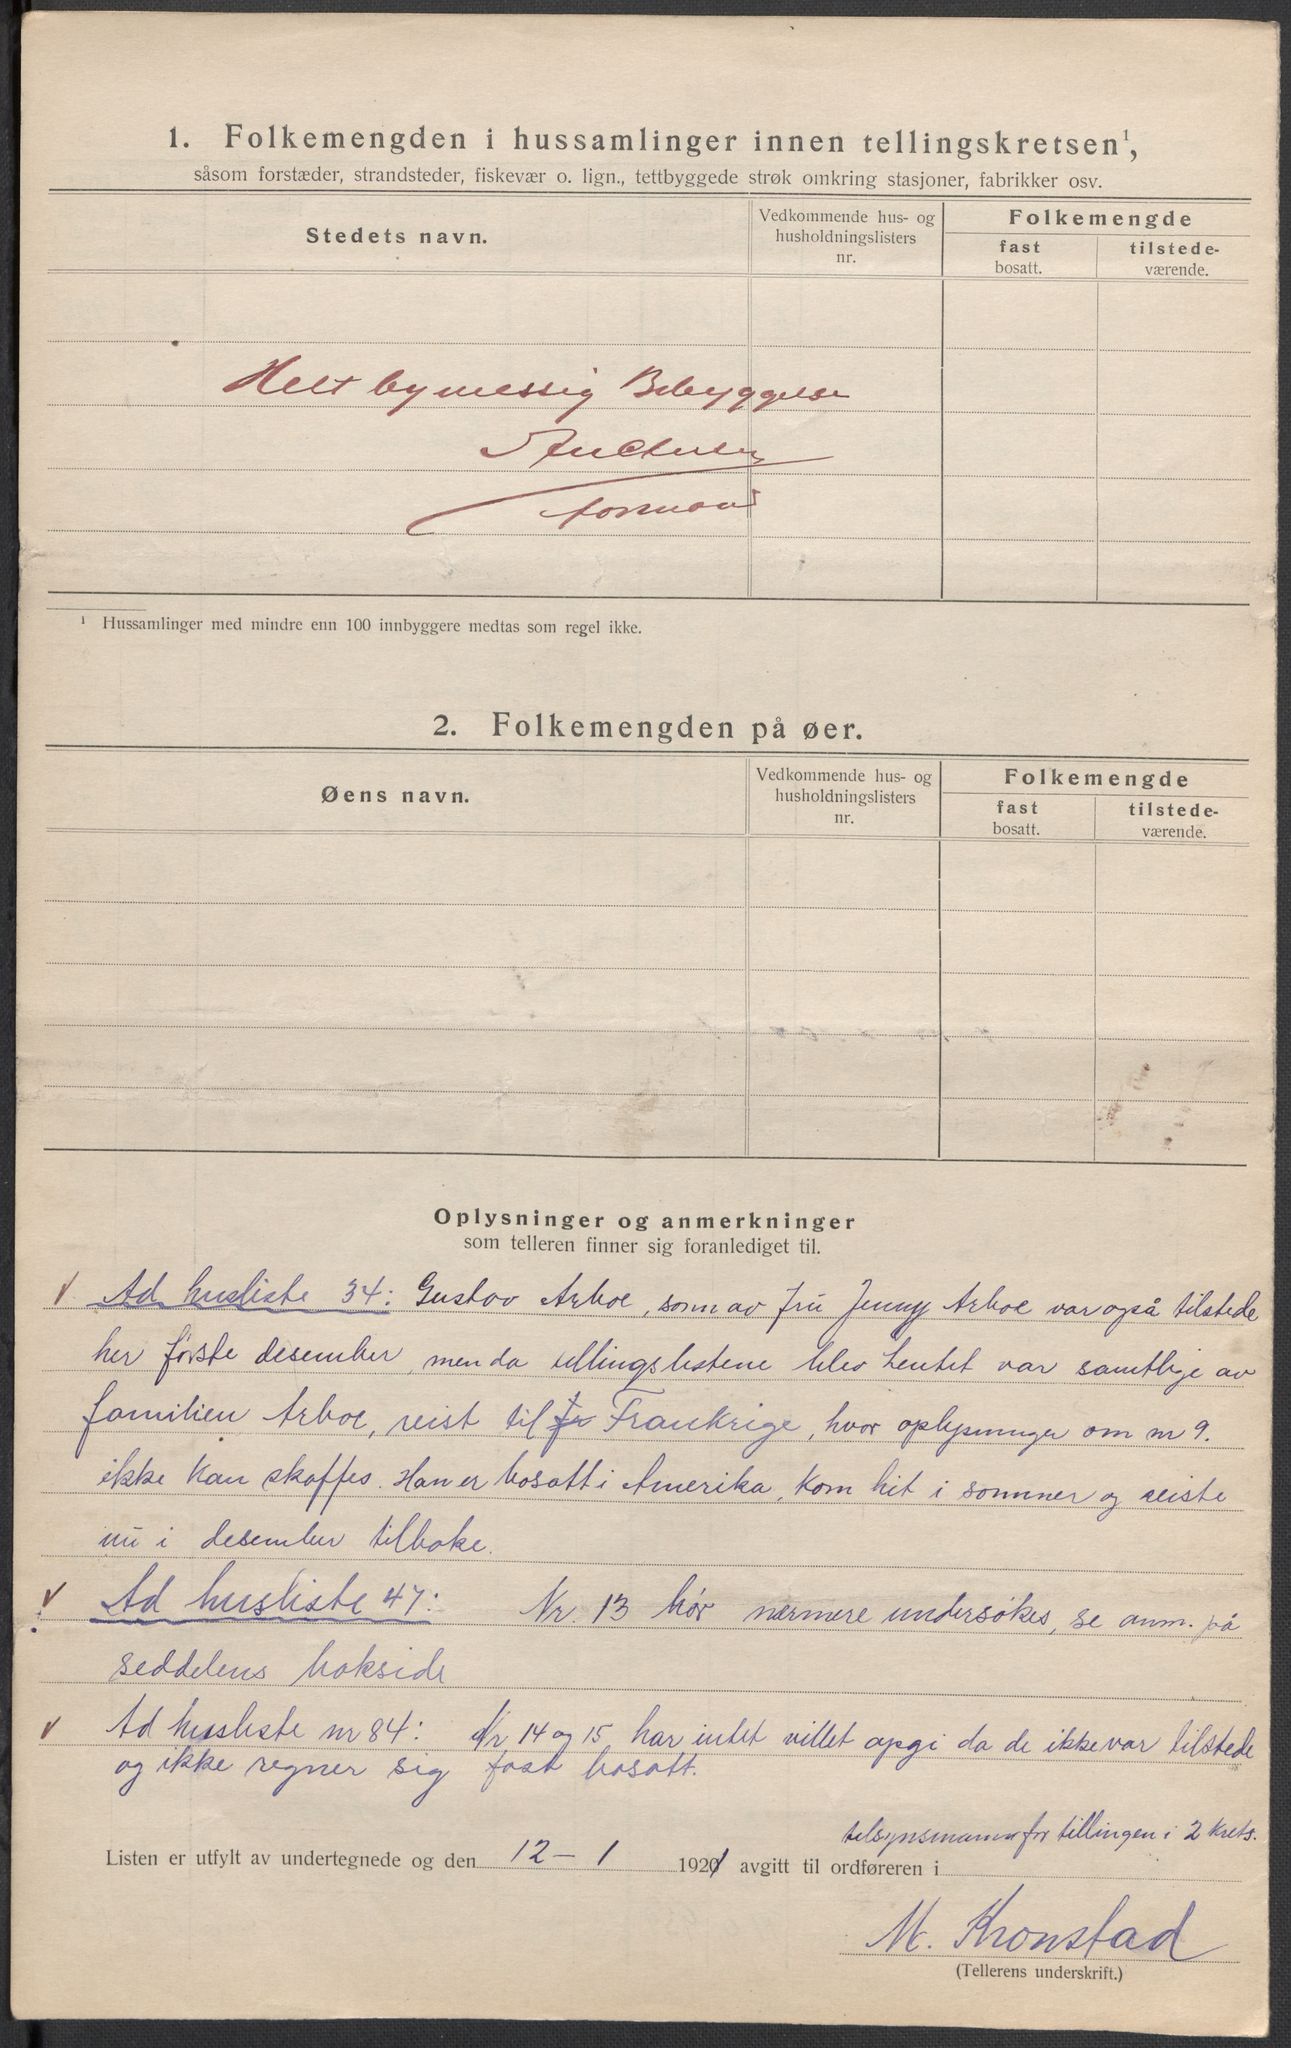 1. Folkemengden i hussamlinger innen tellingskretsen¹,
såsom forstæder, strandsteder, fiskevær o. lign., tettbyggede strøk omkring stasjoner, fabrikker osv.
Stedets navn.
Vedkommende hus- og
husholdningslisters
nr.
Folkemengde
fast
bosatt.
tilstede-
værende.
Helt bymessig Bebyggelse
formand
¹ Hussamlinger med mindre enn 100 innbyggere medtas som regel ikke.
2. Folkemengden på øer.
Øens navn.
Vedkommende hus- og
husholdningslisters
nr.
Folkemengde
fast
bosatt.
tilstede-
værende.
Oplysninger og anmerkninger
som telleren finner sig foranlediget til.
Ad husliste 34: Gustav Arboe, sønn av fru Jenny Arboe var også tilstede
her første desember, men da tellingslistene blev hentet var samtlige av
familien Arboe, reist til fr Frankrige, hvor oplysninger om nr 9.
ikke kan skaffes. Han er bosatt i Amerika, kom hit i sommer og reiste
nu i desember tilbake.
Ad husliste 47: Nr. 13 bør nærmere undersøkes, se anm. på
seddelens bakside
Ad husliste nr 84: Nr 14 og 15 har intet villet opgi da de ikke var tilstede
og ikke regner sig fast bosatt.
tilsynsmann for tellingen i 2 krets.
Listen er utfylt av undertegnede og den 12 - 1 1921 avgitt til ordføreren i
M. Kronstad
(Tellerens underskrift.)